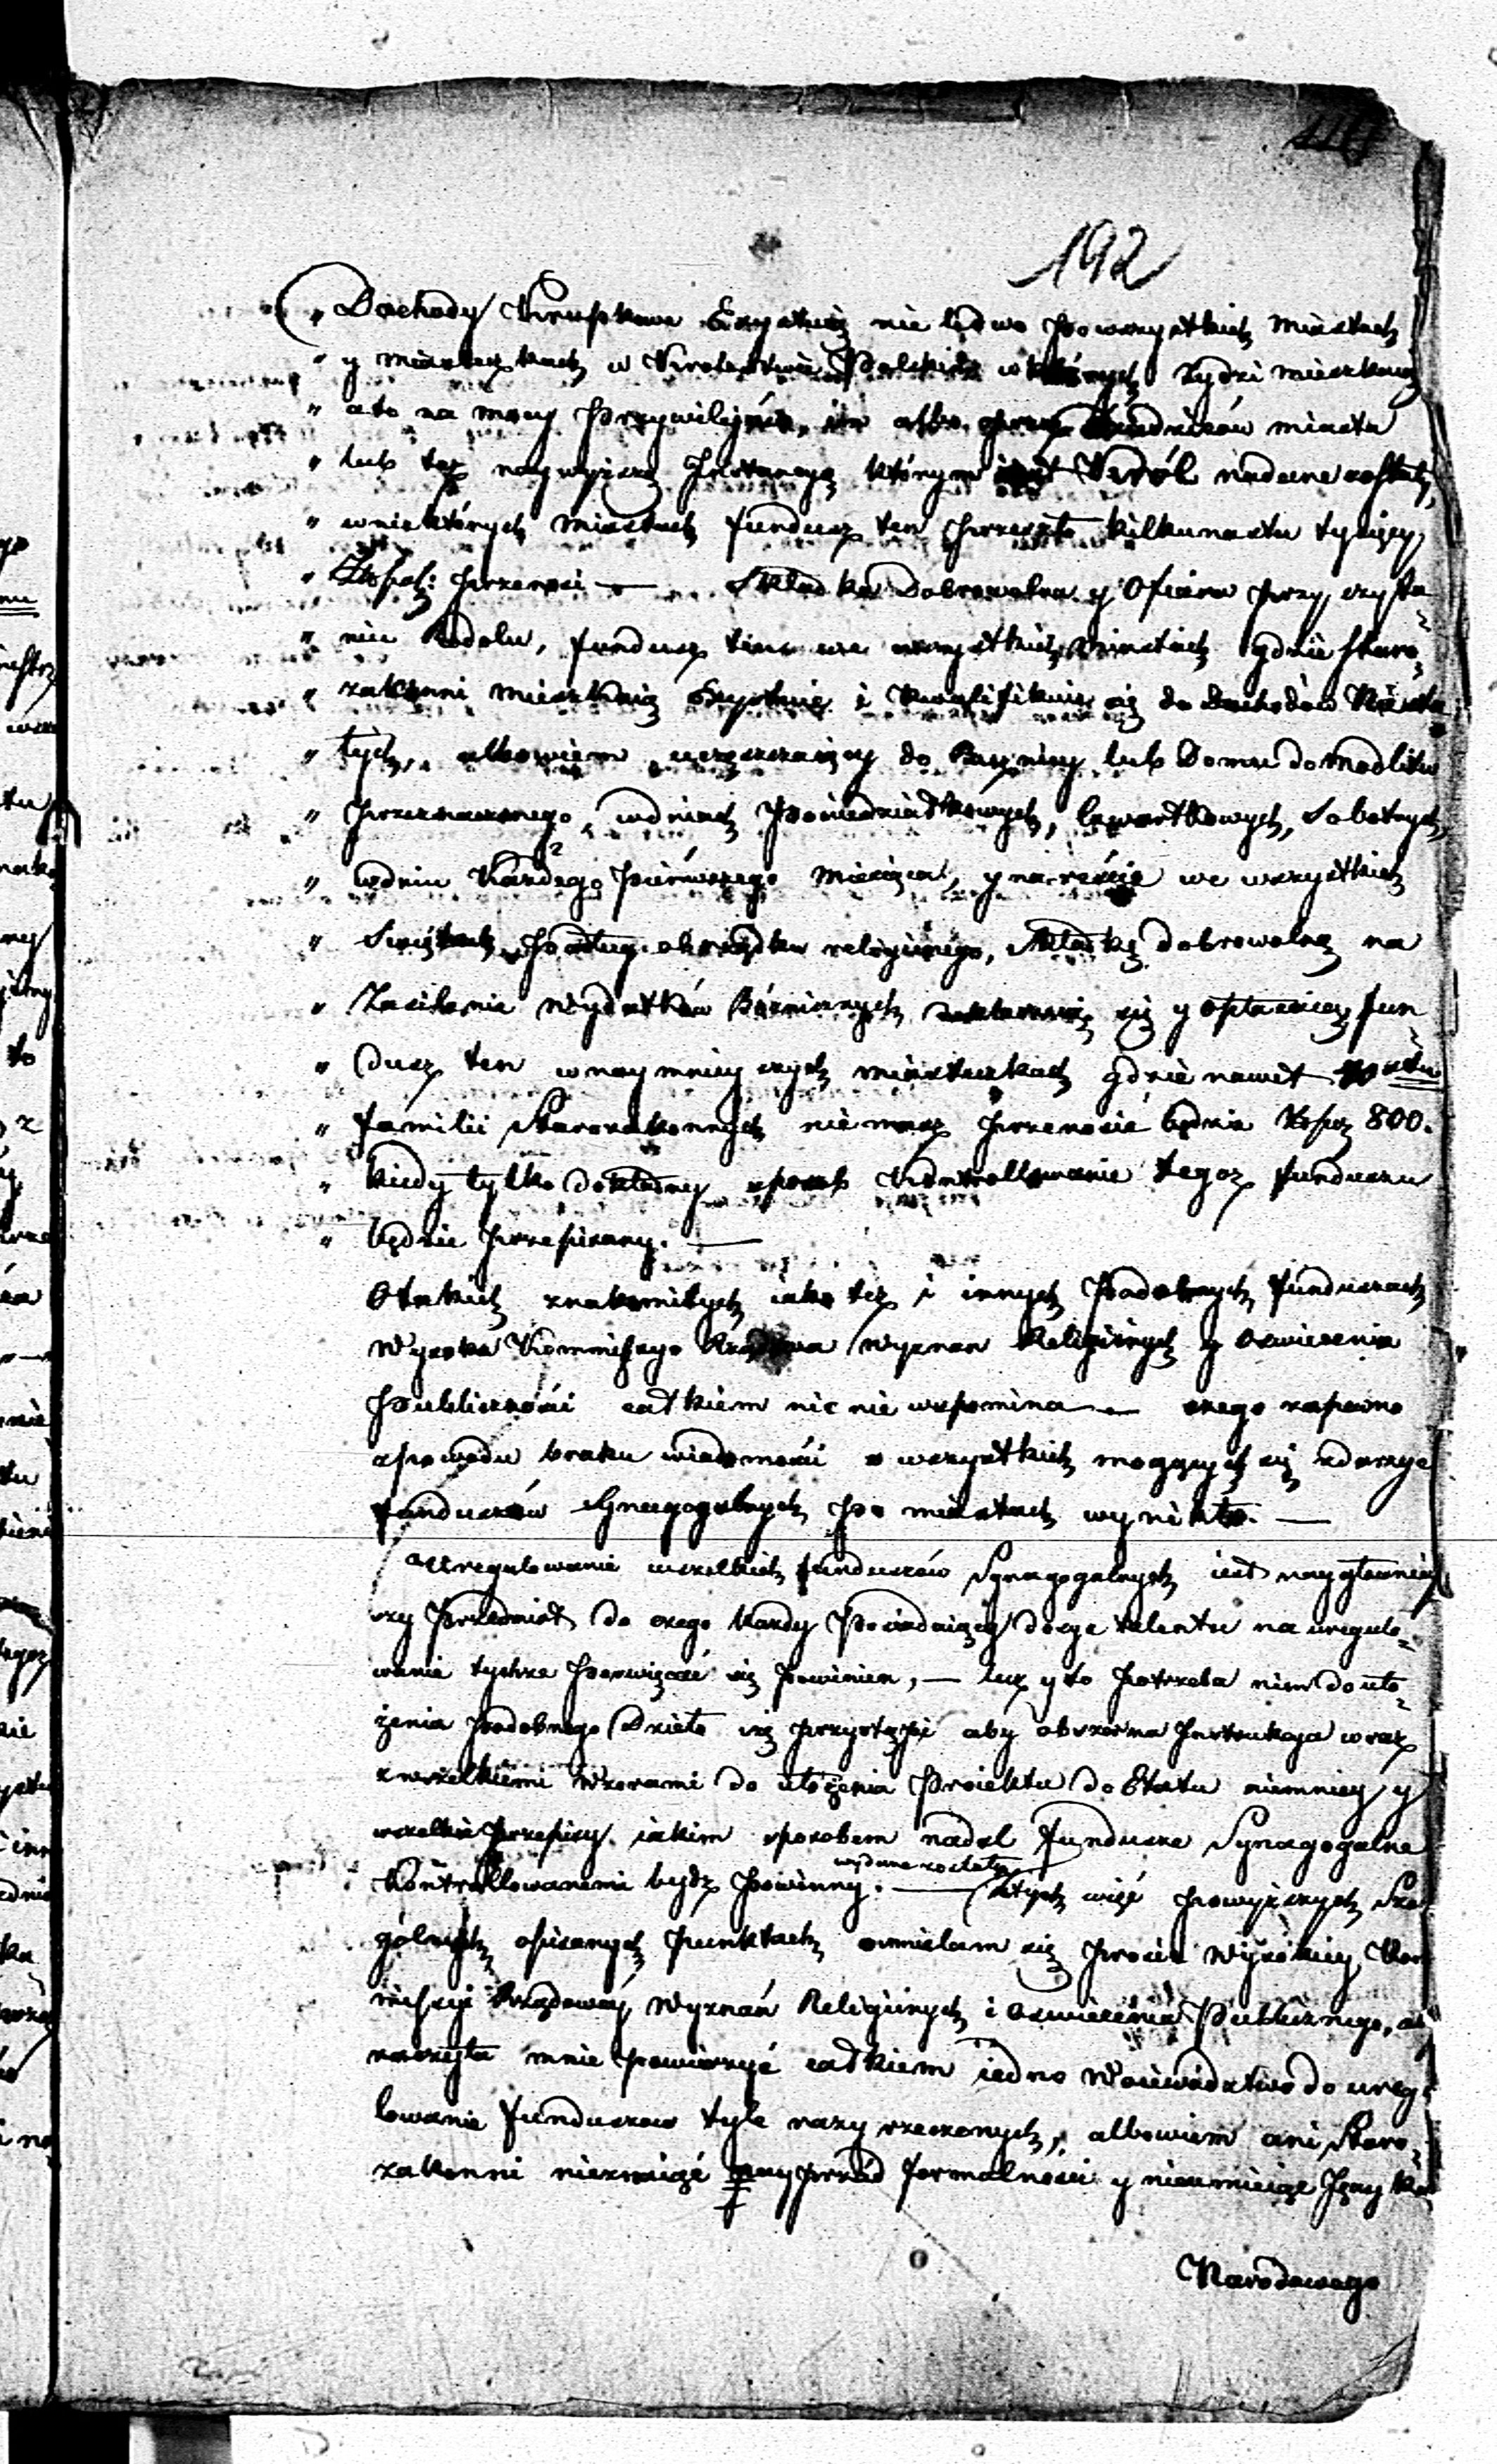 192
" Dochody Krupkowe Exystuią nie ledwo po wszystkich miastach
" y miasteczkach w Krolestwie Polskim w których Żydzi mieszkaią
" a to na mocy Przywilejów, albo przez Dziedziców miasta
" lub też naywyższą Instancyą którym iest Król nadane zostały,
" w niektórych miastach fundusz ten przeszło kilkunastu tysięcy
" Złopol: przenosi — Składka Dobrowolna y Ofiara przy czyta-
" niu Rodału, fundusz we wszystkich miastach gdzie staro-
" zakonni mieszkaią Exystuie i kwalifikuie się do dochodów
" tych, albowiem uczęszczaiący do Bożnicy lub Domu do Modlitw
" przeznaczonego, w dniach Poniedziałkowych, Czwartkowych, Sobotnych,
" w dniu Każdego pierwszego miesiąca, y na reście we wszystkich
" Świętach, podług obrządku religiinego, składkę dobrowolną na
" Zasilenie Wydatków Bożnicznych deklaruią się y opłacaią, fun
" dusz ten w naymnieyszych miasteczkach gdzie nawet
" familii Starozakonnych nie masz przenosić będzie Złpo 800.
" kiedy tylko dokładny sposób Kontrollowania tegoż funduszu
" będzie przepisany. —
O takich znakomitych iako też i innych Podobnych funduszach
Wysoka Kommissya Rządowa Wyznan Religiinych y Oswiecenia
Publiczności całkiem nic nie wspomina — czego zapewne
z powodu braku wiadomości o wszystkich mogących się zdarzyć
funduszów Synagogalnych po miastach wynikło. —
Uregulowanie wszelkich funduszów Synagogalnych iest naygłowniey
szy Przedmiot do czego każdy Posiadaiący dosyć talentu na uregulo-
wanie tychże poswięcać się powinien, — lecz y to potrzeba nim do uło-
żenia podobnego Dzieła się przystąpi aby obszerna Instrukcja wraz
z wszelkiemi Wzorami do ułożenia Proiektu do Etatu niemniey y
wszelkie Przepisy iakim sposobem nadal fundusze Synagogalne
Kontrollowanemi bydź Powinny. wydane zostały — W tych więc powyższych Szcze
gólnych opisanych punktach osmielam się prosić Wysokiey Kom
missyi Rządowey Wyznań Religiinych i Oswiecenia Publicznego, aby
raczyła mnie powierzyć całkiem iedno Woiewództwo do uregu
lowania funduszow tyle razy rzeczonych, albowiem ani Staro-
zakonni nieznaiąc nayprzód formalności y nieumieiąc Języka
Narodowego